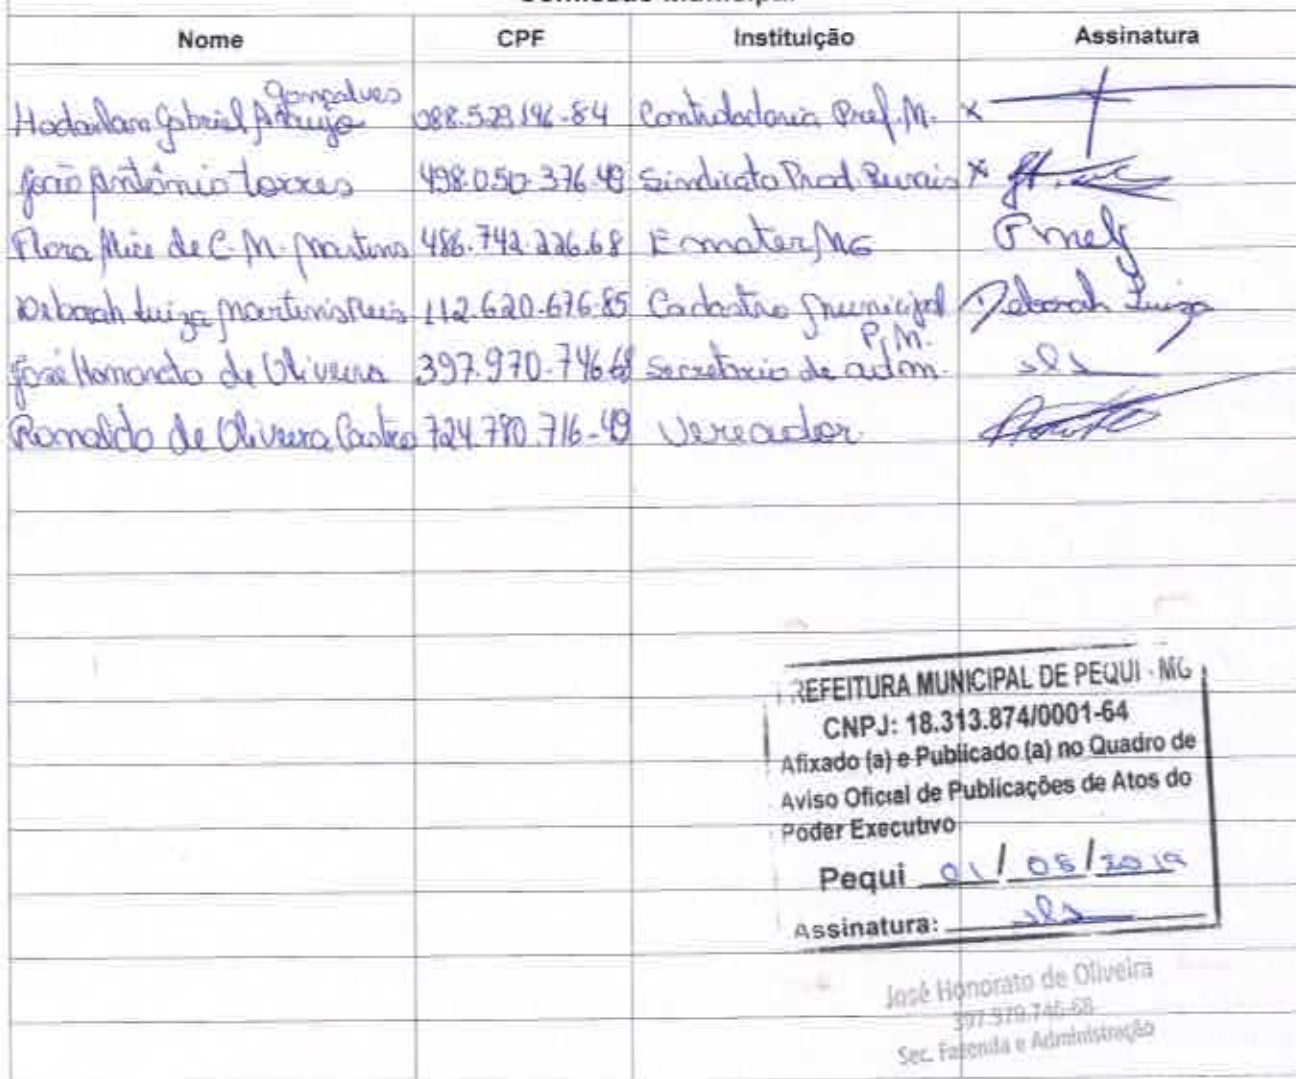 Nome CPF Instituição Assinatura
Gonçalves
Hadarlan Gabriel Araujo 088.529.196-84 Controladoria Pref. M. x
João Antônio torres 498.050.376.49 Sindicato Prod. Rurais x
Flora Alice de C. M. Martins 486.742.226.68 Emater/MG
Deborah Luiza Martins Reis 112.620.676-85 Cadastro Municipal Deborah Luiza
P. M.
José Honorato de Oliveira 397.970.746 68 Secretario de adm.
Ronaldo de Oliveira Castro 724.780.716-49 Vereador
REFEITURA MUNICIPAL DE PEQUI - MG
CNPJ: 18.313.874/0001-64
Afixado (a) e Publicado (a) no Quadro de
Aviso Oficial de Publicações de Atos do
Poder Executivo
Pequi 01/08/2019
Assinatura:
José Honorato de Oliveira
397.970.746-68
Sec. Fazenda e Administração